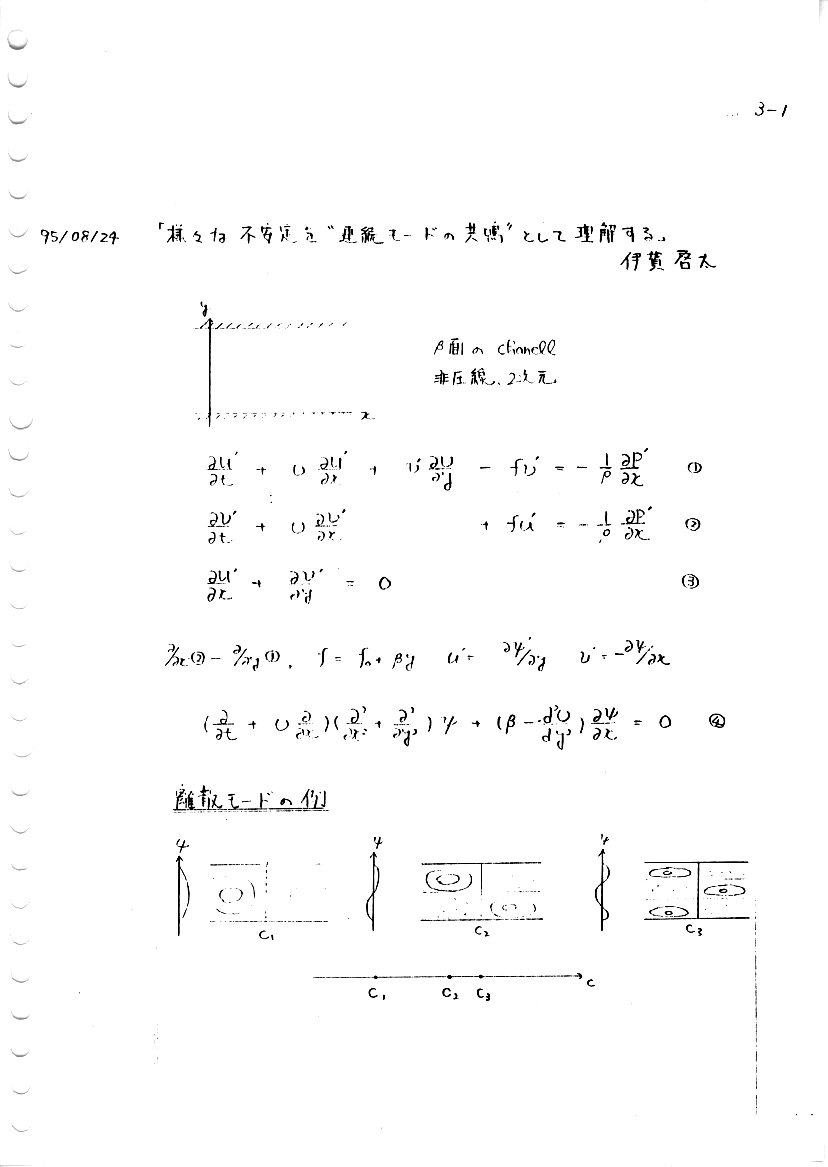 ... 3-1
95/08/24 「様々な不安定を"連続モードの共鳴"として理解する」
伊賀 啓太
y
β面の channell
非圧縮、2次元。
x
∂u′/∂t + U ∂u′/∂x + v′ ∂U/∂y - fv′ = - 1/ρ ∂P′/∂x ①
∂v′/∂t + U ∂v′/∂x + fu′ = - 1/ρ ∂P′/∂x ②
∂u′/∂x + ∂v′/∂y = 0 ③
∂/∂x② - ∂/∂y①, f = f₀ + βy u′ = ∂ψ′/∂y v′ = -∂ψ′/∂x
(∂/∂t + U ∂/∂x)(∂²/∂x² + ∂²/∂y²)ψ + (β - d²U/dy²) ∂ψ/∂x = 0 ④
離散モードの例
ψ ψ ψ
C₁ C₂ C₃
c
C₁ C₂ C₃